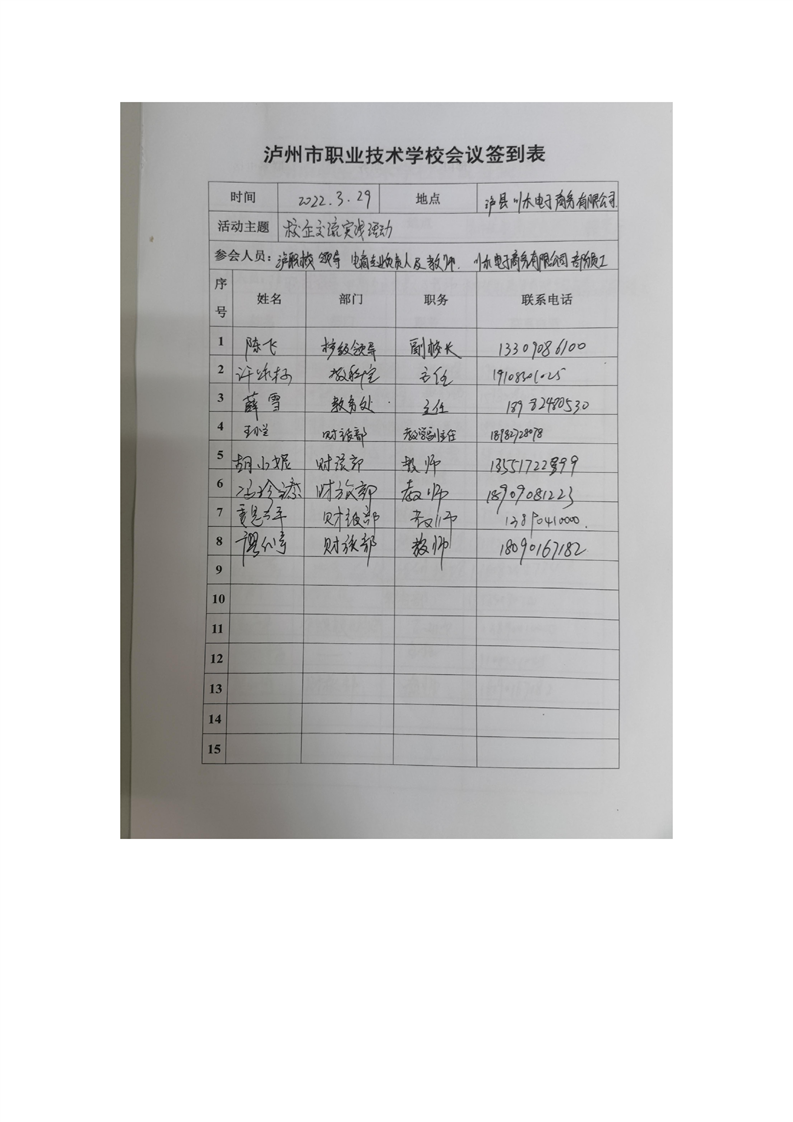 泸州市职业技术学校会议签到表
时间 2022.3.29 地点 泸县川水电子商务有限公司
活动主题 校企交流实践活动
参会人员: 泸职校领导 电商专业负责人及教师. 川水电子商务有限公司 员工
序号 姓名 部门 职务 联系电话
1 陈飞 校级领导 副校长 13309086100
2 教科室 主任 19108301025
3 薛雪 教务处 主任 18982480530
4 财旅部 教学副主任 18982728078
5 胡小妮 财旅部 教师 13551722899
6 财旅部 教师 18909081223
7 财旅部 教师
8 财旅部 教师 18090167182
9
10
11
12
13
14
15